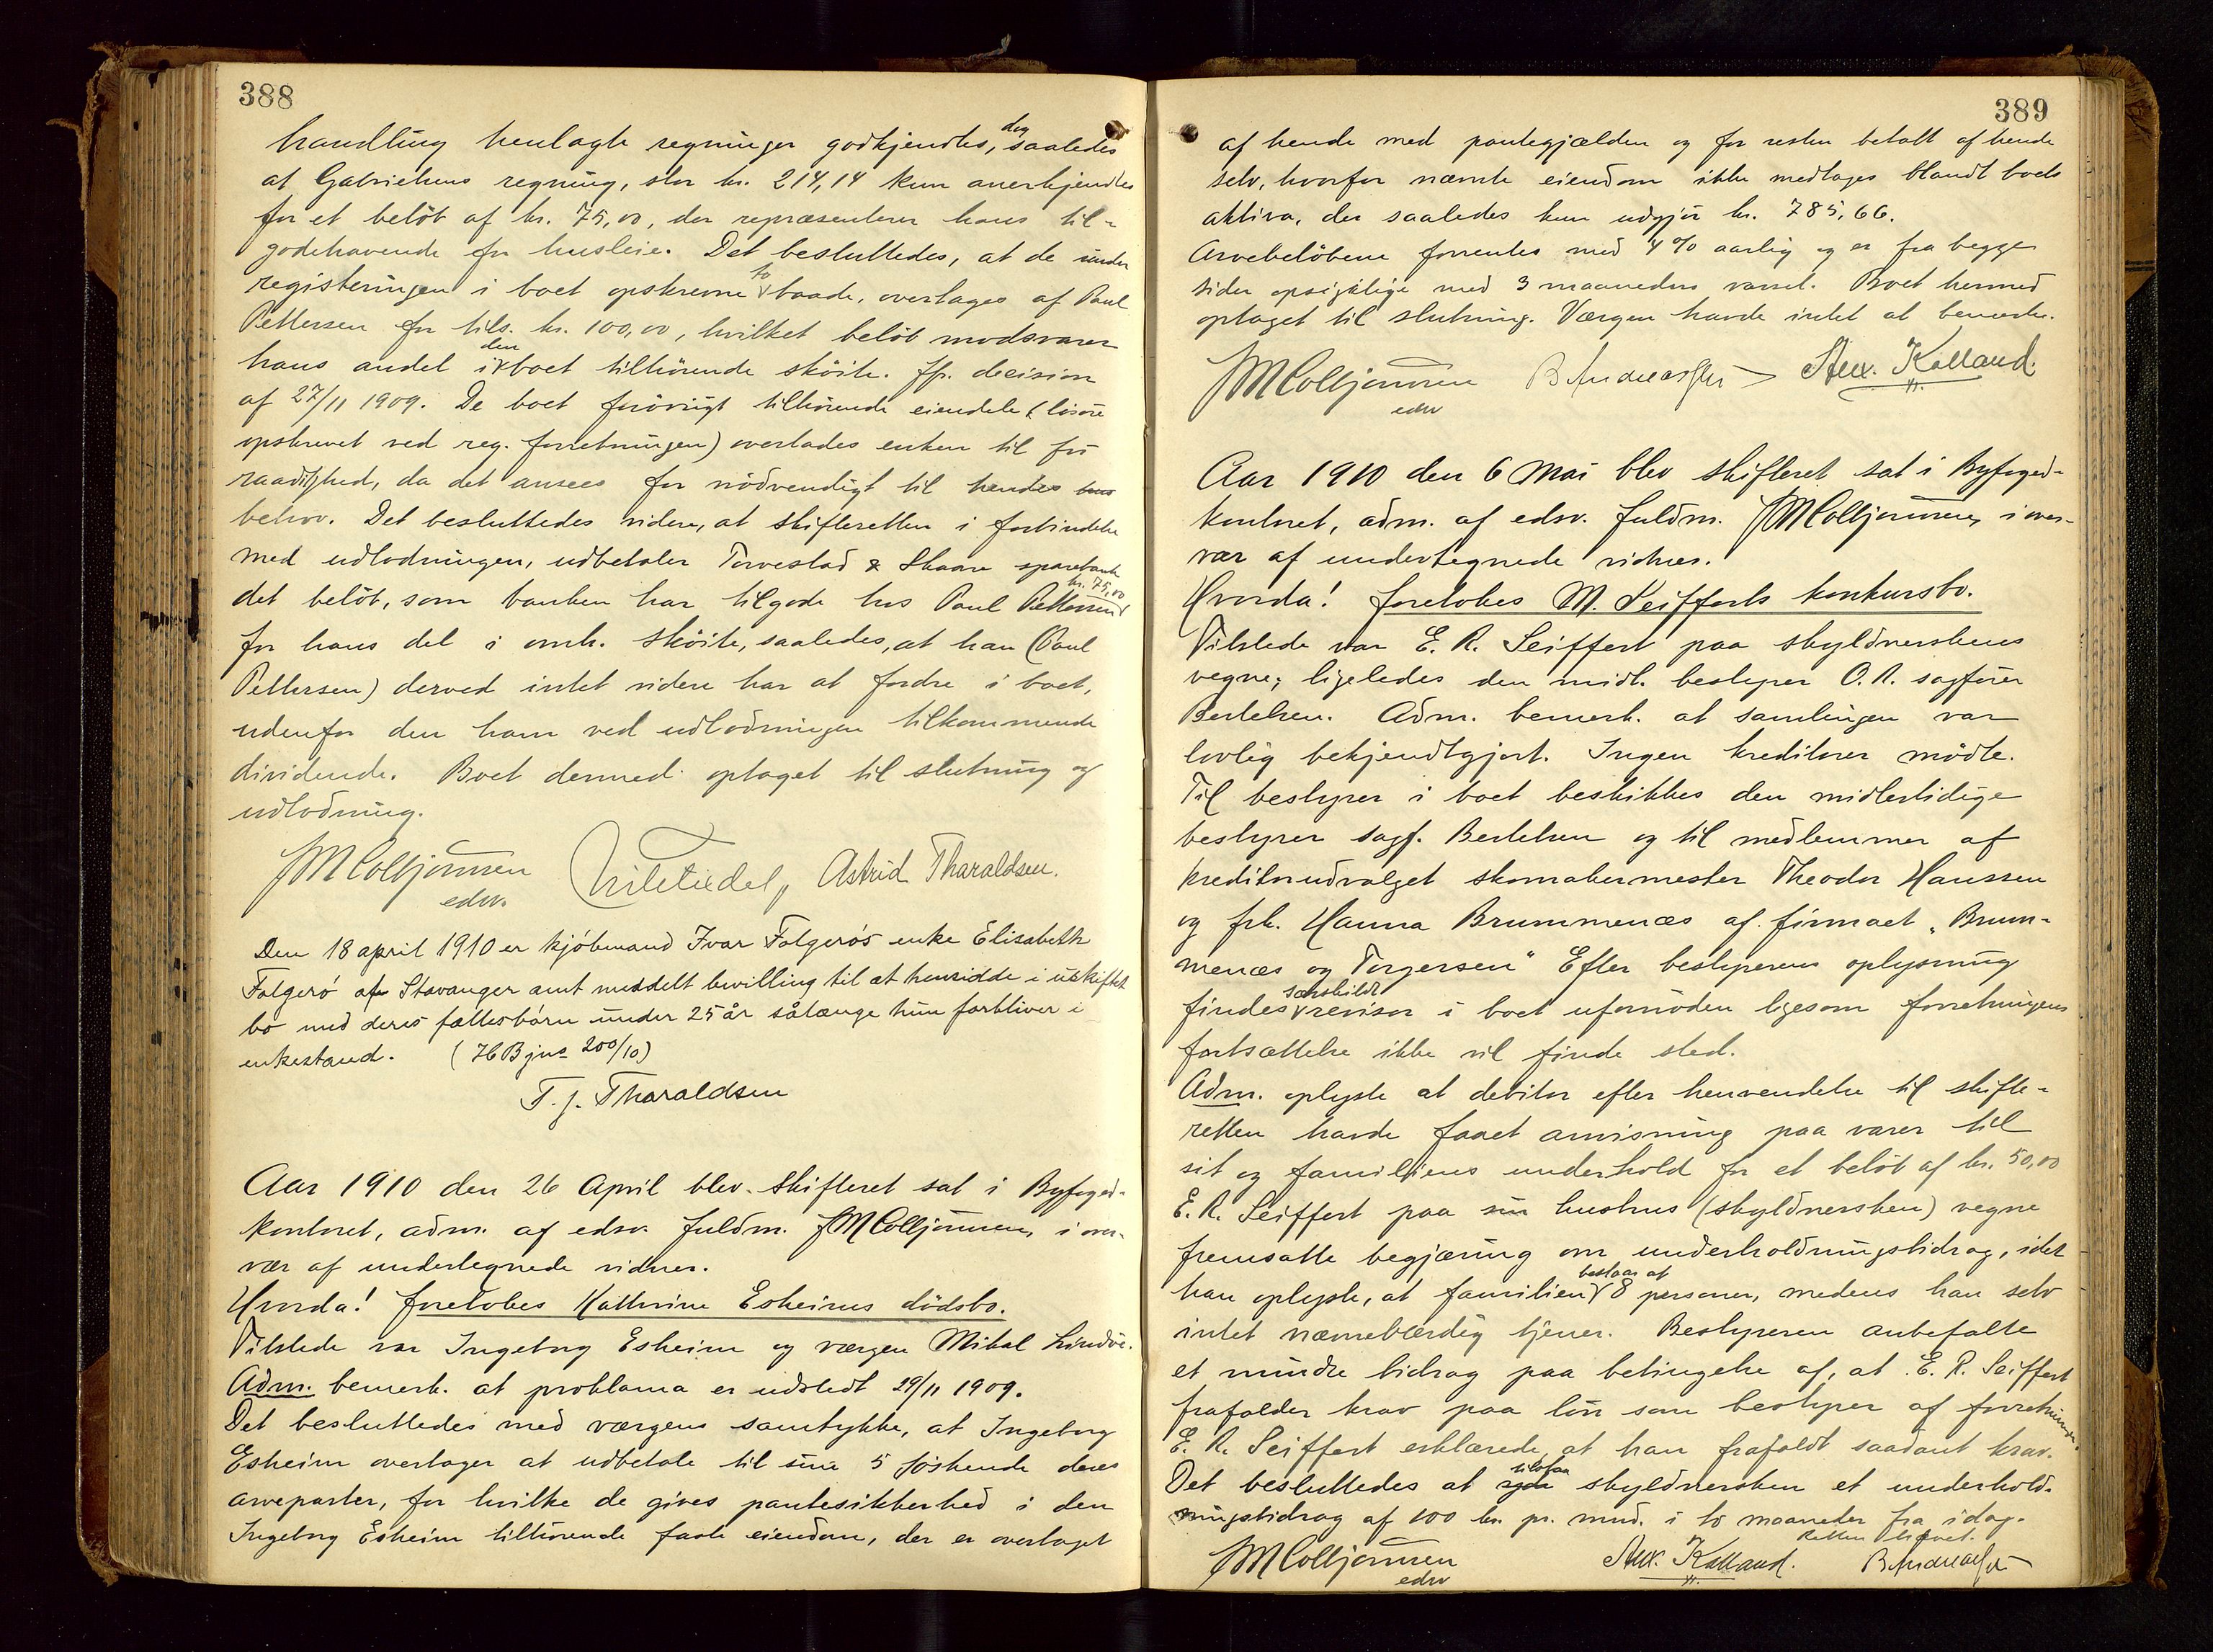 388
handling henlagte regninger godkjendtes, dog saaledes
at Gabrielsens regning, stor kr. 214,14 kun anerkjendtes
for et beløb af kr. 75,00, der repræsenterer hans til-
godehavende for husleie. Det besluttedes, at de under
registeringen i boet opskrevne to baade, overtages af Paul
Pettersen for tils. kr. 100,00, hvilket beløb modsvarer
hans andel i den boet tilhørende skøite. jfr. decision
af 27/11 1909. De boet forøvrigt tilhørende eiendele (løsøre
opskrevet ved reg. forretningen) overlades enken til fri
raadighed, da det ansees for nødvendigt til hendes
behov. Det besluttedes videre, at skifteretten i forbindelse
med udlodningen, udbetaler Torvestad & Skaare sparebank
det beløb, som banken har tilgode hos Paul Pettersen kr. 75,00
for hans del i omh. skøite, saaledes, at han (Paul
Pettersen) derved intet videre har at fordre i boet,
udenfor den ham ved udlodningen tilkommende
dividende. Boet dermed optaget til slutning og
udlodning.
JM Colbjørnsen
edsv.
Astrid Tharaldsen.
Den 18 april 1910 er kjøbmand Ivar Folgerøs enke Elisabeth
Folgerø af Stavanger amt meddelt bevilling til at hensidde i uskiftet
bo med deres fællesbørn under 25 år sålænge hun forbliver i
enkestand. (HB jno 200/10)
T. J. Tharaldsen
Aar 1910 den 26 April blev skifteret sat i Byfoged-
kontoret, adm. af edsv. fuldm. JM Colbjørnsen, i over-
vær af undertegnede vidner.
Hvorda! foretoges Kathrine Esheims dødsbo.
Tilstede var Ingeborg Esheim og værgen Mikal Lindøe.
Adm. bemerk. at proklama er udstedt 29/11 1909.
Det besluttedes med værgens samtykke, at Ingeborg
Esheim overtager at udbetale til sine 5 søskende deres
arveparter, for hvilke de gives pantesikkerhed i den
Ingeborg Esheim tilhørende faste eiendom, der er overtaget
389
af hende med pantegjælden og for resten betalt af hende
selv, hvorfor nævnte eiendom ikke medtages blandt boets
aktiva, der saaledes kun udgjør kr. 785,66.
Arvebeløbene forrentes med 4% aarlig og er fra begge
sider opsigelige med 3 maaneders varsel. Boet hermed
optaget til slutning. Værgen havde intet at bemerke.
JM Colbjørnsen B Andreassen Alex. Kolland.
edsv
Aar 1910 den 6 Mai blev skifteret sat i Byfoged-
kontoret, adm. af edsv. fuldm. JM Colbjørnsen, i over-
vær af undertegnede vidner.
Hvorda! foretokes M. Seifferts konkursbo.
Tilstede var E. R. Seiffert paa skyldnerskens
vegne; ligeledes den midl. bestyrer O.R. sagfører
Bertelsen. Adm. bemerk. at samlingen var
lovlig bekjendtgjort. Ingen kreditorer mødte.
Til bestyrer i boet beskikkes den midlertidige
bestyrer sagf. Bertelsen og til medlemmer af
kreditorudvalget skomakermester Theodor Hanssen
og frk. Hanna Brummenæs af firmaet „Brum-
menæs og Torgersen“ Efter bestyrerens oplysning
findes særskildt revisor i boet ufornøden ligesom forretningens
fortsættelse ikke vil finde sted.
Adm. oplyste at debitor efter henvendelse til skifte-
retten havde faaet anvisning paa varer til
sit og familiens underhold for et beløb af kr. 50,00
E. R. Seiffert paa sin hustrus (skyldnersken) vegne
fremsatte begjæring om underholdningsbidrag, idet
han oplyste, at familien bestaar af 8 personer, medens han selv
intet nævneværdig tjener. Bestyreren anbefalte
et mindre bidrag paa betingelse af, at E. R. Seiffert
frafalder krav paa løn som bestyrer af forretningen.
E. R. Seiffert erklærede, at han frafaldt saadant krav.
Det besluttedes at tilstaa skyldnersken et underhold-
ningsbidrag af 100 kr. pr. mnd. i to maaneder fra idag.
Retten hævet.
JM Colbjørnsen Alex. Kolland. B Andreassen
edsv